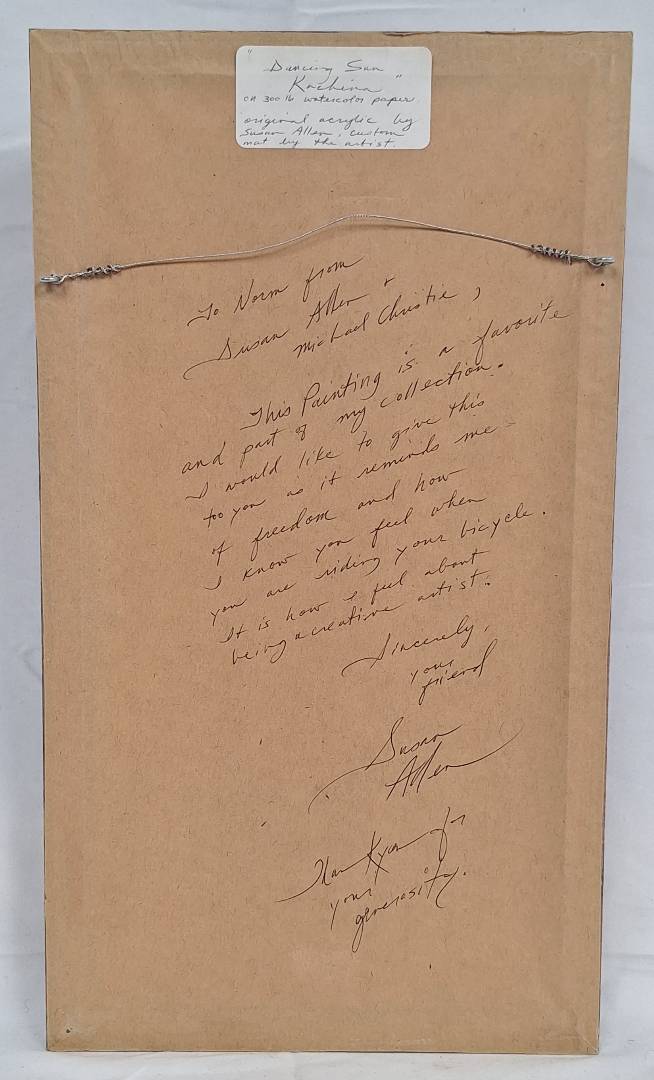 "Dancing Sun
Kachina"
on 300 lb watercolor paper
original acrylic by
Susan Allen, custom
mat by the artist.
To Norm from
Susan Allen &
Michael Christie,
This Painting is a favorite
and part of my collection.
I would like to give this
too you as it reminds me
of freedom and how
I know you feel when
you are riding your bicycle.
It is how I feel about
being a creative artist.
Sincerely,
your
friend
Susan
Allen
Thankyou for
your
generosity.